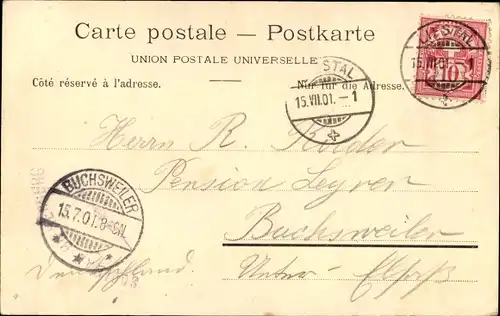 Carte postale — Postkarte
UNION POSTALE UNIVERSELLE
Côté réservé à l'adresse.
Nur für die Adresse.
LIESTAL
15.VII.01.-1
10
STAL
15.VII.01.-1
Herrn R.
Pension
Buchsweiler
Unter-Elsaß
Deutschland.
BUCHSWEILER
15.7.01.8-9N.